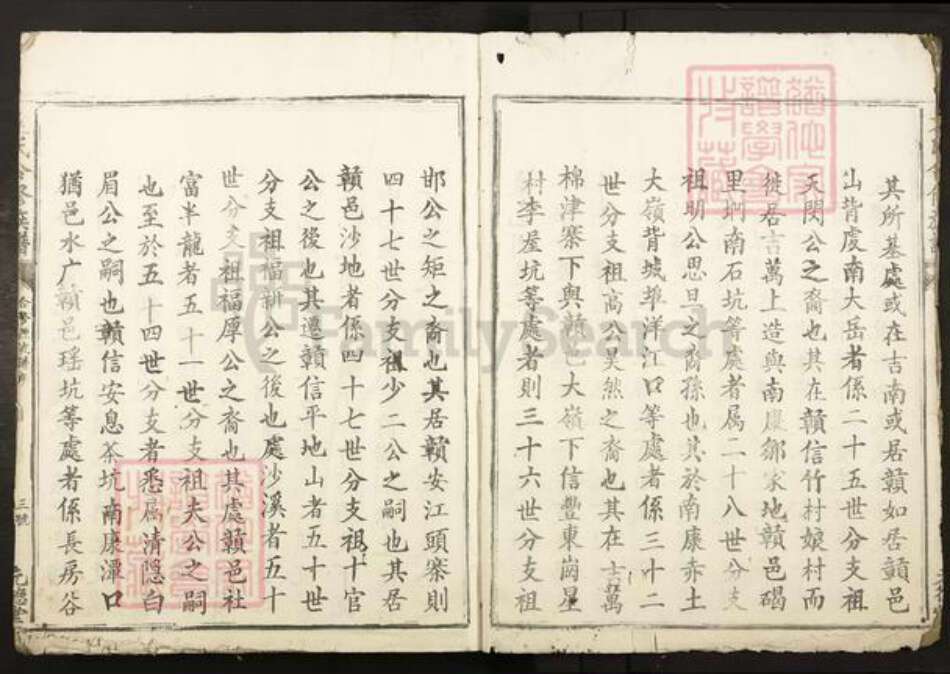 其所基處或在吉南或居贛如居贛邑
山背虔南大岳者係二十五世分支祖
天閔公之裔也其在贛信竹村娘村而
徙居吉萬上造與南康鄒家地贛邑碣
里圳南石坑等處者属二十八世分支
祖明公思旦之裔孫也其於南康赤土
大嶺背城雅洋江口等處者係三十二
世分支祖高公昊然之裔也其在吉萬
棉津寨下與贛邑大嶺下信豐東崗星
村李屋坑等處者則三十六世分支祖
邯公之矩之裔也其居贛安江頭寨則
四十七世分支祖少二公之嗣也其居
贛邑沙地者係四十七世分支祖十官
公之後也其遷贛信平地山者五十世
分支祖福新公之後也處沙溪者五十
世分支祖福厚公之裔也其處贛邑社
富半龍者五十一世分支祖夫公之嗣
也至於五十四世分支者悉属清隱白
眉公之嗣也贛信安息茶坑南康潭口
猶邑水广贛邑瑶坑等處者係長房谷
三號
FamilySearch